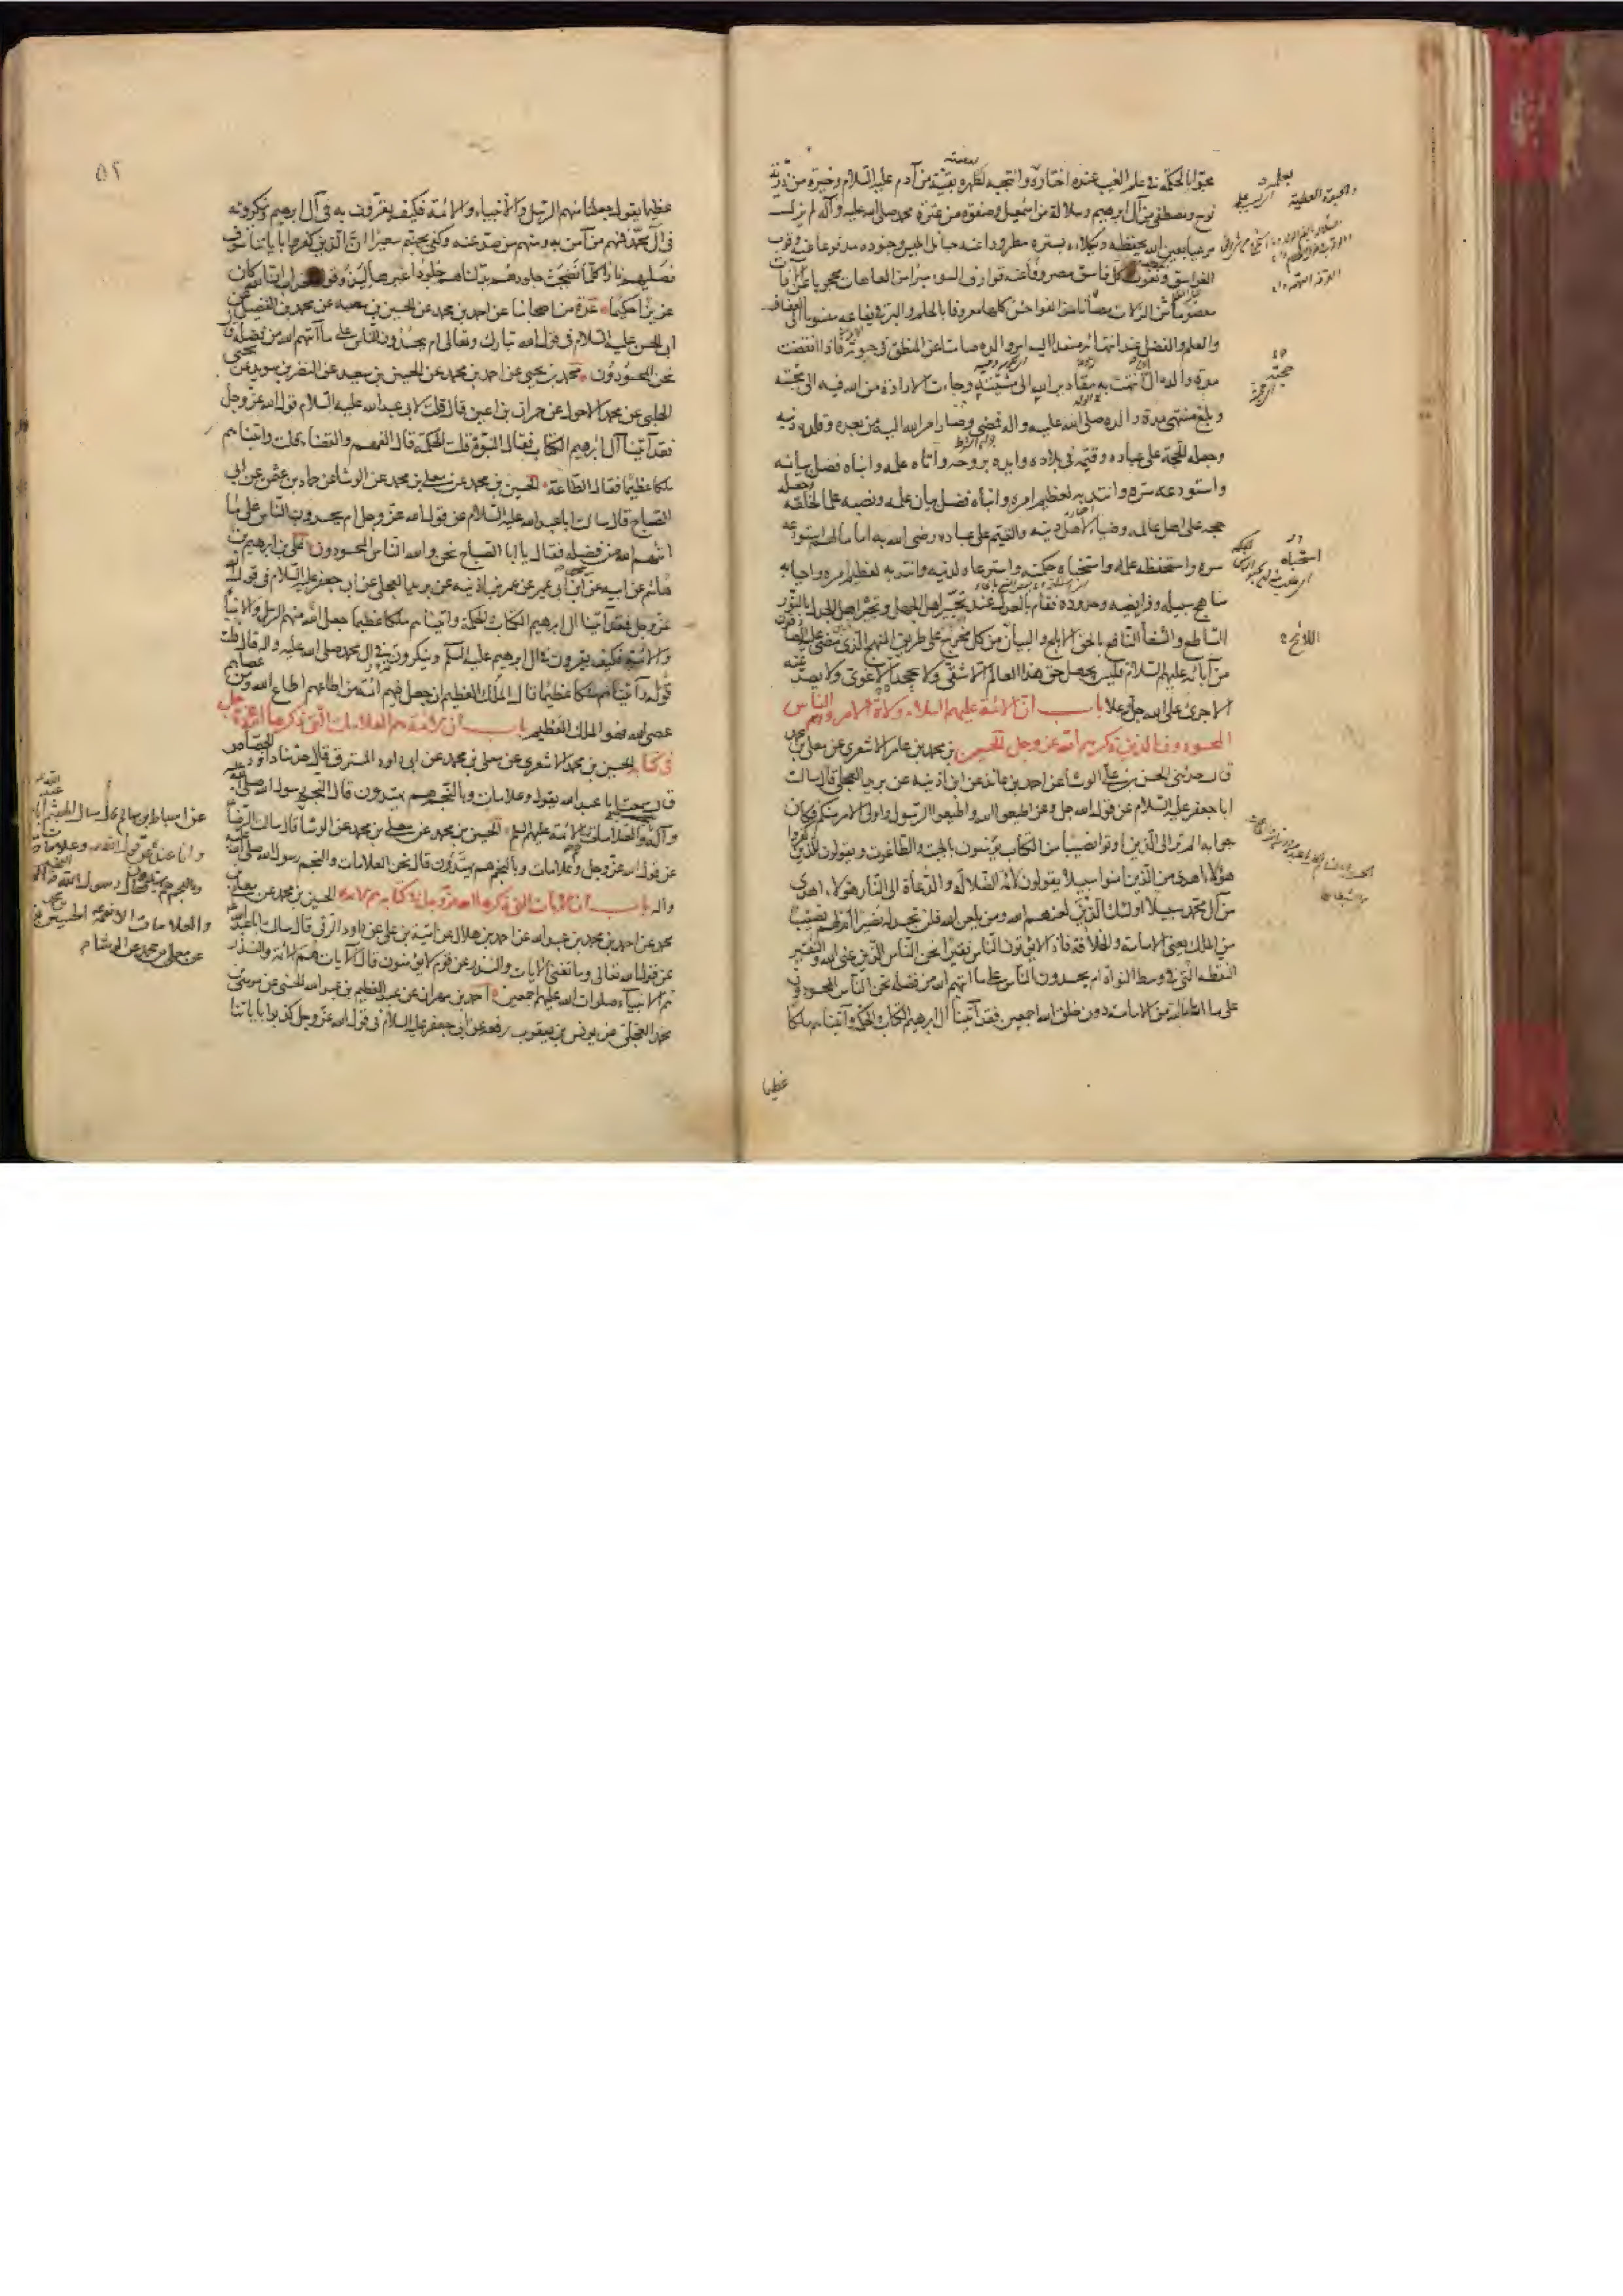 محبوا بالحكمة في علم الغيب عنده اختاره وانتجبه لطهره بقية من آدم عليه السلام وخيرة من ذرية
نوح ومصطفى من آل ابرهيم وسلالة من اسمعيل وصفوة من عترة محمد صلى الله عليه وآله لم يزل
مرعيا بعين الله يحفظه ويكلاءه بستره مطرودا عنه حبائل ابليس وجنوده مدفوعا عنه وقوب
الغواسق ونفوث كل فاسق مصروفا عنه قوارف السوء مبرّا من العاهات محجوبا عن الآفات
معصوما من الزلات مصانا من الفواحش كلها معروفا بالحلم والبر في يفاعه منسوبا الى العفاف
والعلم والفضل عند انتهائه مسندا اليه امر والده صامتا عن المنطق في حيوته فاذا انقضت
مدة والده الى ان انتهت به مقادير الله الى مشيته وجاءت الارادة من الله فيه الى محبته
وبلغ منتهى مدة والده صلى الله عليه واله فمضى وصار امر الله اليه من بعده وقلده دينه
وجعله الحجة على عباده وقيمه في بلاده وايده بروحه واتاه علمه وانباه فضل بيانه
واستودعه سره وانتدبه لعظيم امره وانباه فضل بيان علمه ونصبه علما لخلقه وجعله
حجة على اهل عالمه وضياء لاهل دينه والقيم على عباده رضى الله به اماما لهم استودعه
سره واستحفظه علمه واستخباه حكمته واسترعاه لدينه وانتدبه لعظيم امره واحيا به
مناهج سبيله وفرايضه وحدوده فقام بالعدل عند تحير اهل الجهل وتحيير اهل الجدل بالنور
الساطع والشفاء النافع بالحق الابلج والبيان من كل مخرج على طريق المنهج الذي مضى عليه الصادقون
من آبائه عليهم السلام فليس يجهل حق هذا العالم الا شقي ولا يجحده الا غوى ولا يصد عنه
الا جرى على الله جل وعلا باب ان الائمة عليهم السلام ولاة الامر وهم الناس
المحسودون الذين ذكرهم الله عز وجل الحسين بن محمد بن عامر الاشعري عن معلى بن محمد
قال حدثني الحسن بن علي الوشاء عن احمد بن عائذ عن ابن اذينه عن بريد العجلي قال سالت
ابا جعفر عليه السلام عن قول الله عز وجل اطيعوا الله واطيعوا الرسول واولى الامر منكم فكان
جوابه الم تر الى الذين اوتوا نصيبا من الكتاب يؤمنون بالجبت والطاغوت ويقولون للذين كفروا
هؤلاء اهدى من الذين آمنوا سبيلا يقولون لائمة الضلالة والدعاة الى النار هؤلاء اهدى
من آل محمد سبيلا اولئك الذين لعنهم الله ومن يلعن الله فلن تجد له نصيرا ام لهم نصيب
من الملك يعنى الامامة والخلافة فاذا لا يؤتون الناس نقيرا نحن الناس الذين عنى الله والنقير
النقطة التي في وسط النواة ام يحسدون الناس على ما اتيهم الله من فضله نحن الناس المحسودون
على ما اتانا الله من الامامة دون خلق الله اجمعين فقد آتينا آل ابرهيم الكتاب والحكمة وآتيناهم ملكا
عظيما
اللائح
٥٢
عظيما يقول جعلنا منهم الرسل والانبياء والائمة فكيف يقرون به في آل ابرهيم وينكرونه
في آل محمد فمنهم من آمن به ومنهم من صد عنه وكفى بجهنم سعيرا ان الذين كفروا بآياتنا سوف
نصليهم نارا كلما نضجت جلودهم بدلناهم جلودا غيرها ليذوقوا العذاب ان الله كان
عزيزا حكيما عدة من اصحابنا عن احمد بن محمد عن الحسين بن سعيد عن محمد بن الفضيل عن
ابي الحسن عليه السلام في قول الله تبارك وتعالى ام يحسدون الناس على ما آتيهم الله من فضله قال
نحن المحسودون محمد بن يحيى عن احمد بن محمد عن الحسين بن سعيد عن النضر بن سويد عن يحيى
الحلبي عن محمد الاحول عن حمران بن اعين قال قلت لابي عبد الله عليه السلام قول الله عز وجل
فقد آتينا آل ابرهيم الكتاب فقال النبوة قلت الحكمة قال الفهم والقضاء قلت وآتيناهم
ملكا عظيما فقال الطاعة الحسين بن محمد عن معلى بن محمد عن الوشاء عن حماد بن عثمن عن ابي
الصباح قال سالت ابا عبد الله عليه السلام عن قول الله عز وجل ام يحسدون الناس على ما
اتيهم الله من فضله فقال يا ابا الصباح نحن والله الناس المحسودون علي بن ابرهيم بن
هاشم عن ابيه عن ابن ابي عمير عن عمر بن اذينة عن بريد العجلي عن ابي جعفر عليه السلام في قول الله
عز وجل فقد آتينا آل ابرهيم الكتاب والحكمة وآتيناهم ملكا عظيما جعل الله منهم الرسل والانبياء
والائمة فكيف يقرون في آل ابرهيم عليه السلم وينكرونه في آل محمد صلى الله عليه واله قال قلت
قوله وآتيناهم ملكا عظيما قال الملك العظيم ان جعل فيهم ائمة من اطاعهم اطاع الله ومن عصاهم
عصى الله فهو الملك العظيم باب ان الائمة هم العلامات التي ذكرها الله عز وجل
في كتابه الحسين بن محمد الاشعري عن معلى بن محمد عن ابي داود المسترق قال حدثنا داود الجصاص
قال سمعت ابا عبد الله يقول وعلامات وبالنجم هم يهتدون قال النجم رسول الله صلى الله عليه
وآله والعلامات هم الائمة عليهم السلم الحسين بن محمد عن معلى بن محمد عن الوشاء قال سالت الرضا
عن قول الله عز وجل وعلامات وبالنجم هم يهتدون قال نحن العلامات والنجم رسول الله صلى الله عليه
واله باب ان الآيات التي ذكرها الله عز وجل في كتابه هم الائمة الحسين بن محمد عن معلى بن
محمد عن احمد بن محمد بن عبد الله عن احمد بن هلال عن امية بن علي عن داود الرقى قال سالت ابا عبد الله
عن قول الله تعالى وما تغنى الآيات والنذر عن قوم لا يؤمنون قال الآيات هم الائمة والنذر
هم الانبياء صلوات الله عليهم اجمعين احمد بن مهران عن عبد العظيم بن عبد الله الحسنى عن موسى بن
محمد العجلى عن يونس بن يعقوب رفعه عن ابي جعفر عليه السلام في قول الله عز وجل كذبوا بآياتنا
عن اسباط بن سالم قال سال الهيثم ابا عبد الله
وانا عنده عن قول الله وعلامات
وبالنجم هم يهتدون فقال رسول الله النجم
والعلامات الائمة الحسين بن محمد
عن معلى بن محمد عن الوشاء